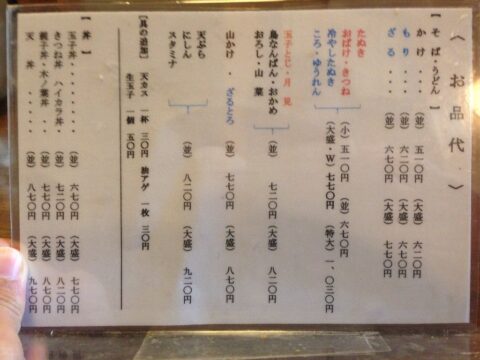 〈お品代〉
【そば・うどん】
かけ・・・・(並) 五一〇円 (大盛) 六二〇円
もり・・・・(並) 六二〇円 (大盛) 六七〇円
ざる・・・・(並) 六七〇円 (大盛) 七七〇円
たぬき
おばけ・きつね
冷やしたぬき
ころ・ゆうれん
(小) 五一〇円 (並) 六七〇円
(大盛・W) 七七〇円 (特大) 一、〇三〇円
玉子とじ・月見
鳥なんばん・おかめ
おろし・山菜
(並) 七二〇円 (大盛) 八二〇円
山かけ・ざるとろ (並) 七七〇円 (大盛) 八七〇円
天ぷら
にしん
スタミナ
(並) 八二〇円 (大盛) 九二〇円
【具の追加】 天カス 一杯 三〇円 油アゲ 一枚 三〇円
生玉子 一個 五〇円
【丼】
玉子丼・・・・・・(並) 六七〇円 (大盛) 七七〇円
きつね丼 ハイカラ丼・(並) 七二〇円 (大盛) 八二〇円
親子丼・木ノ葉丼・(並) 七七〇円 (大盛) 八七〇円
天丼・・・・・・(並) 八七〇円 (大盛) 九七〇円